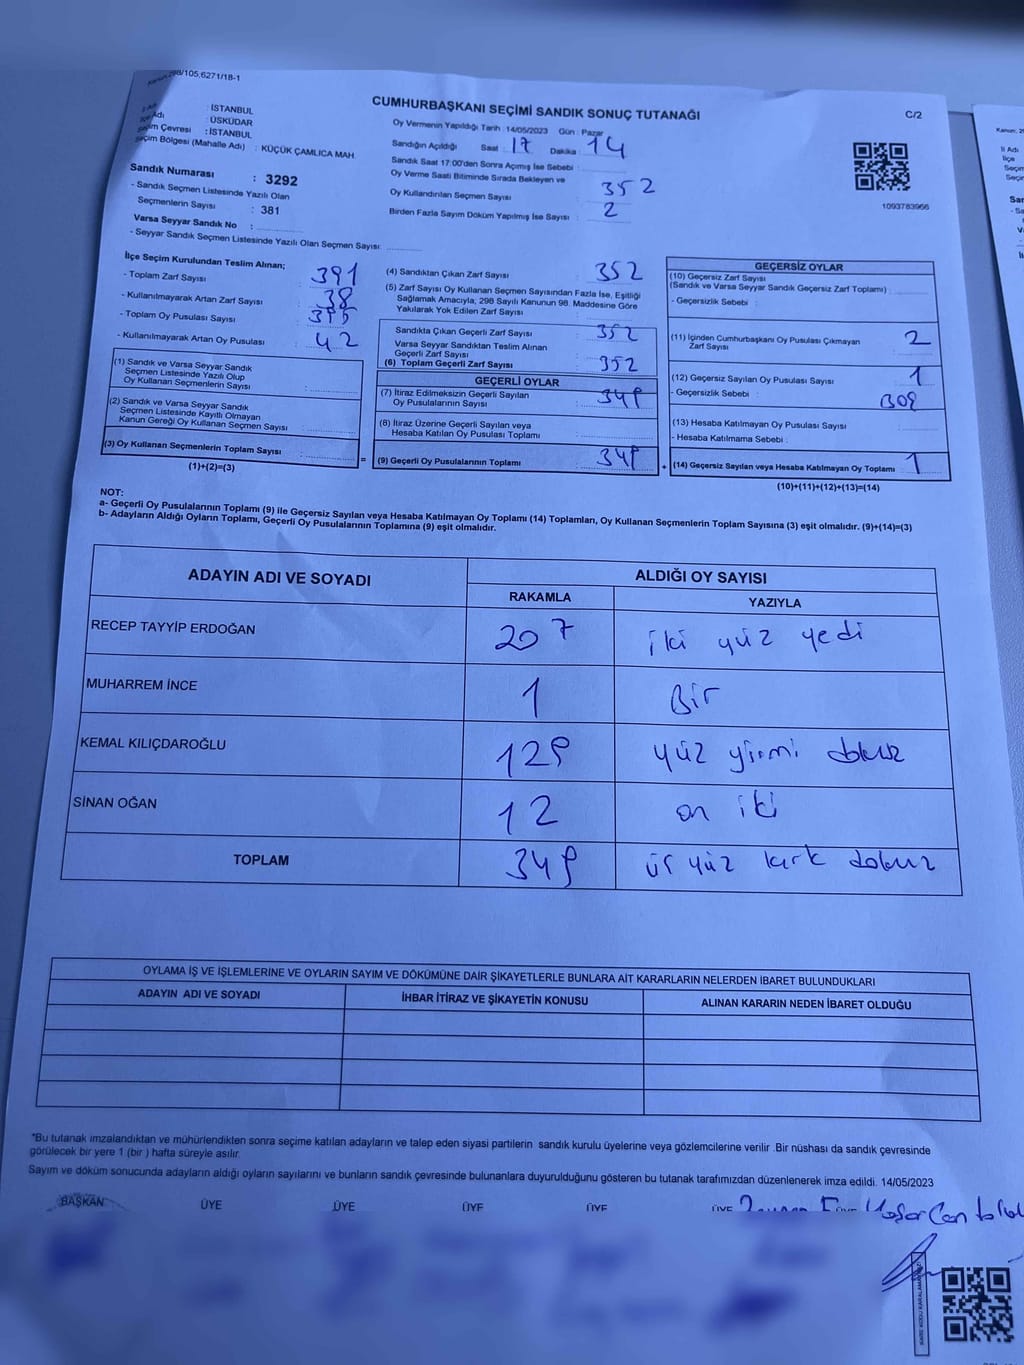 Kanun:298/105,6271/18-1
CUMHURBAŞKANI SEÇİMİ SANDIK SONUÇ TUTANAĞI
C/2
İl Adı : İSTANBUL
İlçe Adı : ÜSKÜDAR
Seçim Çevresi : İSTANBUL
Seçim Bölgesi (Mahalle Adı) : KÜÇÜK ÇAMLICA MAH.
Sandık Numarası : 3292
- Sandık Seçmen Listesinde Yazılı Olan
Seçmenlerin Sayısı : 381
Varsa Seyyar Sandık No :
- Seyyar Sandık Seçmen Listesinde Yazılı Olan Seçmen Sayısı:
Oy Vermenin Yapıldığı Tarih :14/05/2023 Gün : Pazar
Sandığın Açıldığı Saat : 17 Dakika : 14
Sandık Saat 17:00'den Sonra Açımış İse Sebebi :
Oy Verme Saati Bitiminde Sırada Bekleyen ve
Oy Kullandırılan Seçmen Sayısı : 352
Birden Fazla Sayım Döküm Yapılmış İse Sayısı : 2
1093783966
İlçe Seçim Kurulundan Teslim Alınan;
- Toplam Zarf Sayısı : 391
- Kullanılmayarak Artan Zarf Sayısı : 38
- Toplam Oy Pusulası Sayısı :
- Kullanılmayarak Artan Oy Pusulası : 42
(1) Sandık ve Varsa Seyyar Sandık
Seçmen Listesinde Yazılı Olup
Oy Kullanan Seçmenlerin Sayısı :
(2) Sandık ve Varsa Seyyar Sandık
Seçmen Listesinde Kayıtlı Olmayan
Kanun Gereği Oy Kullanan Seçmen Sayısı :
(3) Oy Kullanan Seçmenlerin Toplam Sayısı :
(1)+(2)=(3)
=
(4) Sandıktan Çıkan Zarf Sayısı : 352
(5) Zarf Sayısı Oy Kullanan Seçmen Sayısından Fazla İse, Eşitliği
Sağlamak Amacıyla, 298 Sayılı Kanunun 98. Maddesine Göre
Yakılarak Yok Edilen Zarf Sayısı :
Sandıkta Çıkan Geçerli Zarf Sayısı : 352
Varsa Seyyar Sandıktan Teslim Alınan
Geçerli Zarf Sayısı :
(6) Toplam Geçerli Zarf Sayısı : 352
GEÇERLİ OYLAR
(7) İtiraz Edilmeksizin Geçerli Sayılan
Oy Pusulalarının Sayısı : 349
(8) İtiraz Üzerine Geçerli Sayılan veya
Hesaba Katılan Oy Pusulası Toplamı :
(9) Geçerli Oy Pusulalarının Toplamı : 349
+
GEÇERSİZ OYLAR
(10) Geçersiz Zarf Sayısı
(Sandık ve Varsa Seyyar Sandık Geçersiz Zarf Toplamı) :
- Geçersizlik Sebebi :
(11) İçinden Cumhurbaşkanı Oy Pusulası Çıkmayan
Zarf Sayısı : 2
(12) Geçersiz Sayılan Oy Pusulası Sayısı : 1
- Geçersizlik Sebebi :
(13) Hesaba Katılmayan Oy Pusulası Sayısı :
- Hesaba Katılmama Sebebi :
(14) Geçersiz Sayılan veya Hesaba Katılmayan Oy Toplamı : 1
(10)+(11)+(12)+(13)=(14)
NOT:
a- Geçerli Oy Pusulalarının Toplamı (9) ile Geçersiz Sayılan veya Hesaba Katılmayan Oy Toplamı (14) Toplamları, Oy Kullanan Seçmenlerin Toplam Sayısına (3) eşit olmalıdır. (9)+(14)=(3)
b- Adayların Aldığı Oyların Toplamı, Geçerli Oy Pusulalarının Toplamına (9) eşit olmalıdır.
ADAYIN ADI VE SOYADI
ALDIĞI OY SAYISI
RAKAMLA YAZIYLA
RECEP TAYYİP ERDOĞAN 207 iki yüz yedi
MUHARREM İNCE 1 Bir
KEMAL KILIÇDAROĞLU 129 yüz yirmi dokuz
SİNAN OĞAN 12 on iki
TOPLAM 349 üç yüz kırk dokuz
OYLAMA İŞ VE İŞLEMLERİNE VE OYLARIN SAYIM VE DÖKÜMÜNE DAİR ŞİKAYETLERLE BUNLARA AİT KARARLARIN NELERDEN İBARET BULUNDUKLARI
ADAYIN ADI VE SOYADI İHBAR İTİRAZ VE ŞİKAYETİN KONUSU ALINAN KARARIN NEDEN İBARET OLDUĞU
*Bu tutanak imzalandıktan ve mühürlendikten sonra seçime katılan adayların ve talep eden siyasi partilerin sandık kurulu üyelerine veya gözlemcilerine verilir .Bir nüshası da sandık çevresinde
görülecek bir yere 1 (bir ) hafta süreyle asılır.
Sayım ve döküm sonucunda adayların aldığı oyların sayılarını ve bunların sandık çevresinde bulunanlara duyurulduğunu gösteren bu tutanak tarafımızdan düzenlenerek imza edildi. 14/05/2023
BAŞKAN ÜYE ÜYE ÜYE ÜYE ÜYE ÜYE